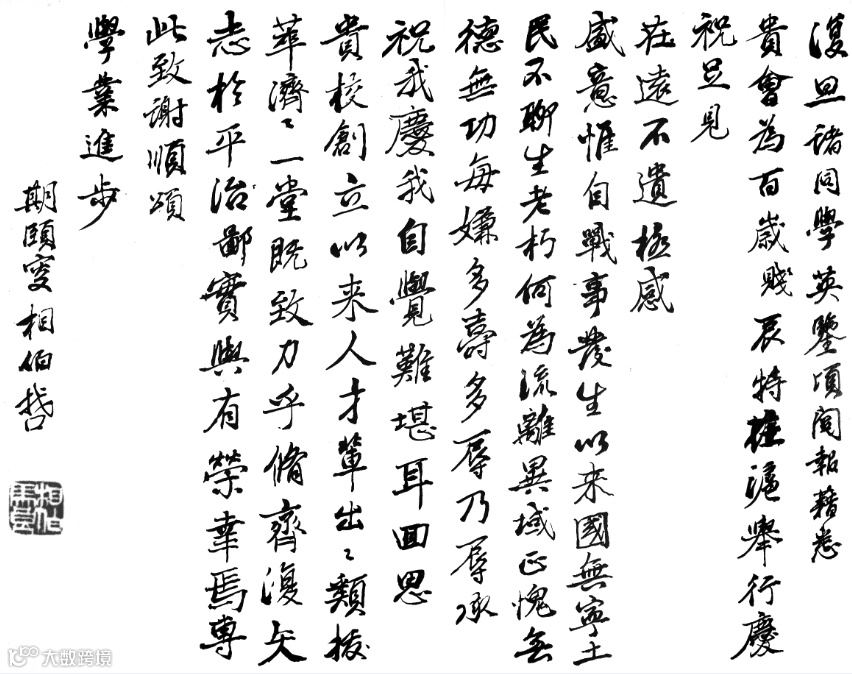 復旦諸同學英鑒頃閱報藉悉
貴會為百歲賤辰特在滬舉行慶
祝足見
在遠不遺極感
盛意惟自戰事發生以來國無寧土
民不聊生老朽何為流離異域正愧無
德無功每嫌多壽多辱乃辱承
祝我慶我自覺難堪耳回思
貴校創立以來人才輩出出類拔
萃濟濟一堂既致力乎脩齊復矢
志於平治鄙實與有榮幸焉專
此致謝順頌
學業進步
期頤叟相伯
大数跨境